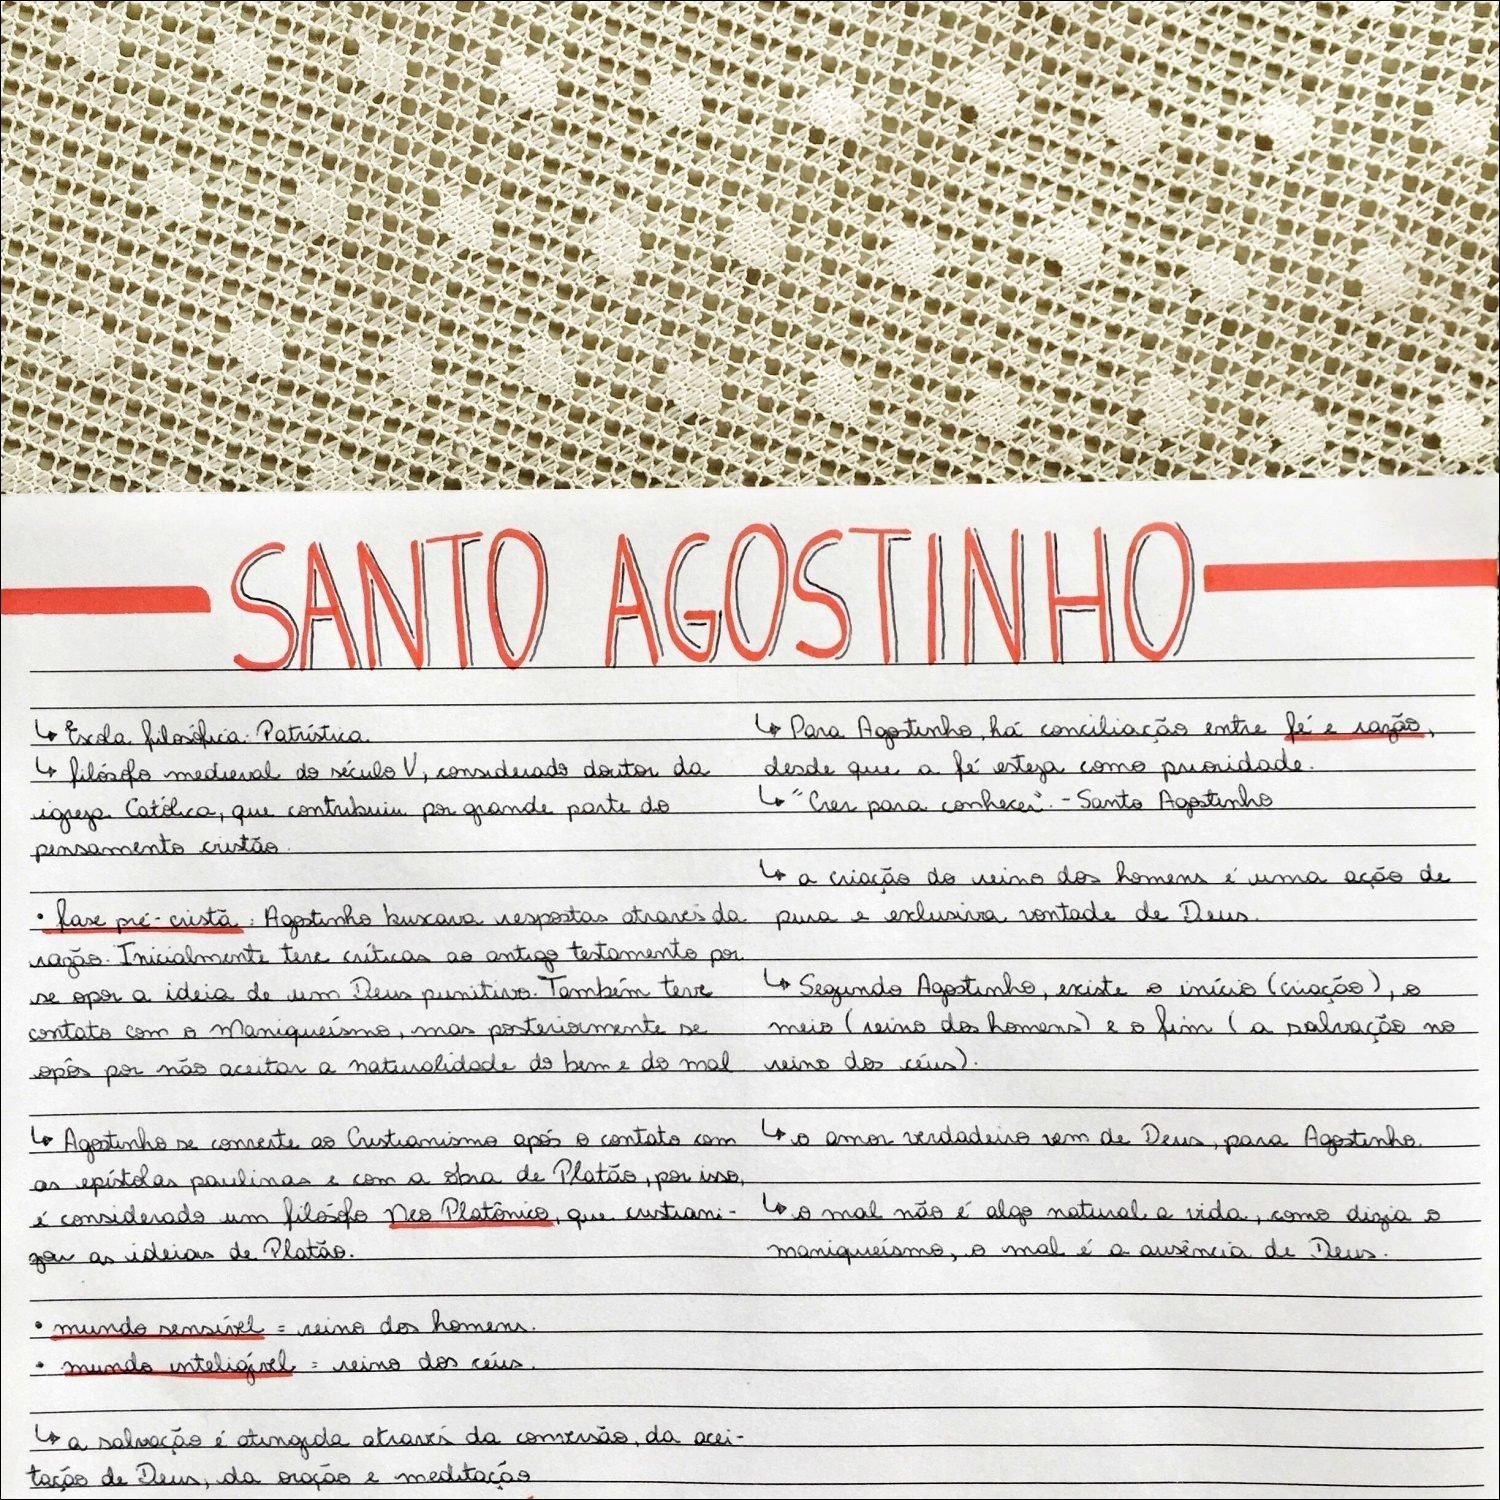 SANTO AGOSTINHO
↳ Escola filosófica: Patrística.
↳ filósofo medieval do século V, considerado doutor da
igreja Católica, que contribuiu por grande parte do
pensamento cristão.
• fase pré-cristã: Agostinho buscava respostas através da
razão. Inicialmente teve críticas ao antigo testamento por
se opor a ideia de um Deus punitivo. Também teve
contato com o Maniqueísmo, mas posteriormente se
opôs por não aceitar a naturalidade do bem e do mal
↳ Agostinho se converte ao Cristianismo após o contato com
as epístolas paulinas e com a obra de Platão, por isso,
é considerado um filósofo Neo Platônico, que cristiani-
zou as ideias de Platão.
• mundo sensível = reino dos homens.
• mundo inteligível = reino dos céus.
↳ a salvação é atingida através da conversão, da acei-
tação de Deus, da oração e meditação
↳ Para Agostinho, há conciliação entre fé e razão,
desde que a fé esteja como prioridade.
↳ "Crer para conhecer". - Santo Agostinho
↳ a criação do reino dos homens é uma ação de
pura e exclusiva vontade de Deus.
↳ Segundo Agostinho, existe o início (criação), o
meio (reino dos homens) e o fim ( a salvação no
reino dos céus).
↳ o amor verdadeiro vem de Deus, para Agostinho.
↳ o mal não é algo natural a vida, como dizia o
maniqueísmo, o mal é a ausência de Deus.